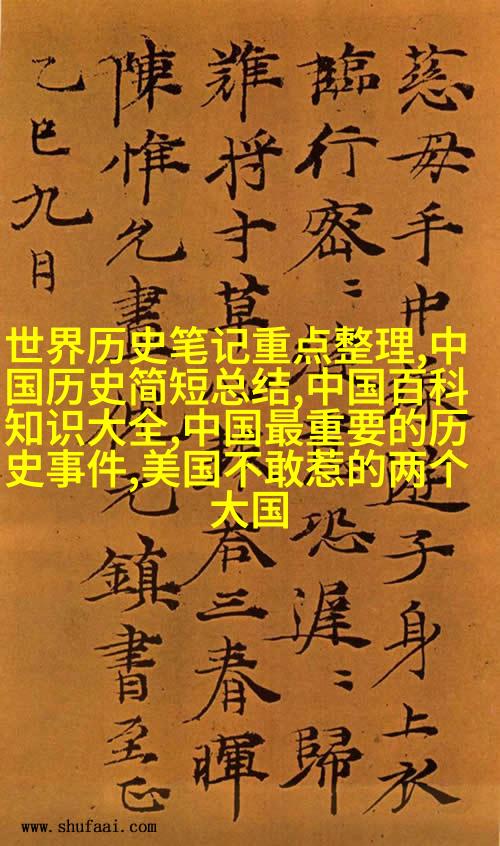 慈母手中遊子身上衣
臨行密〻恐遲〻歸
難将寸草荅三春暉
陳惟允書元鎮書至正
乙巳九月
世界历史笔记重点整理,中
国历史简短总结,中国百科
知识大全,中国最重要的历
史事件,美国不敢惹的两个
大国
www.shufaai.com